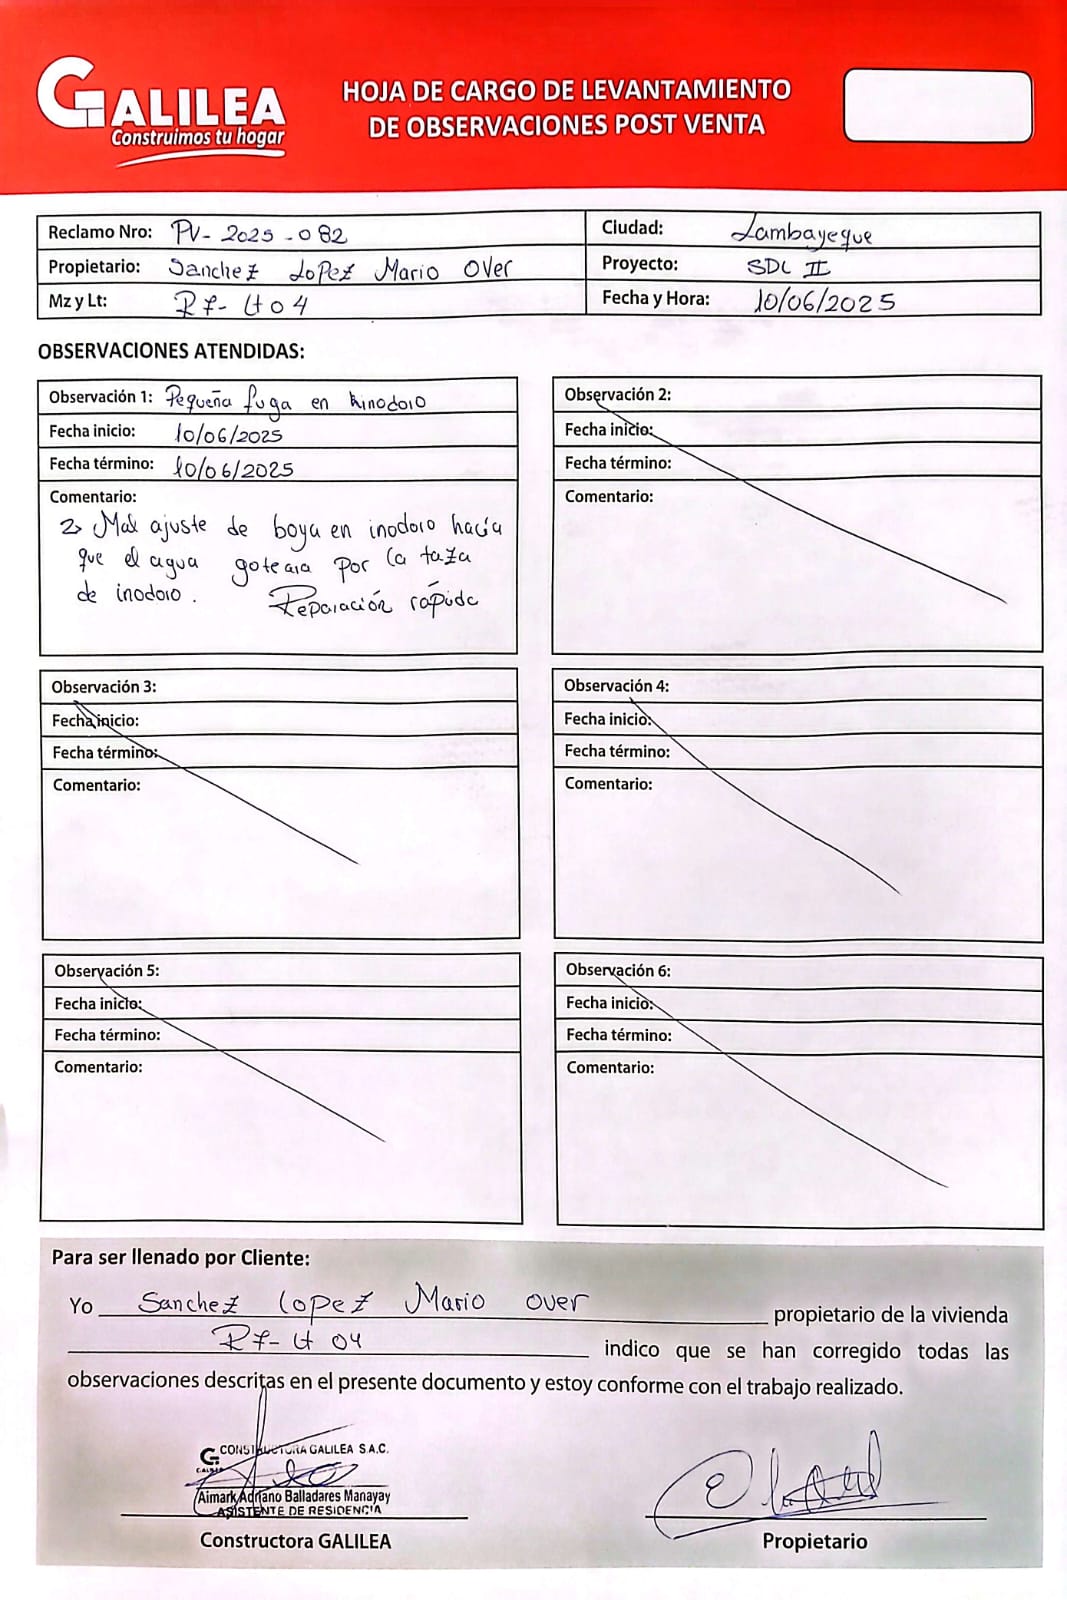 GALILEA
Construimos tu hogar
HOJA DE CARGO DE LEVANTAMIENTO
DE OBSERVACIONES POST VENTA
Reclamo Nro: PV- 2025 - 082
Ciudad: Lambayeque
Propietario: Sanchez Lopez Mario Over
Proyecto: SDL II
Mz y Lt: R7- Lt 04
Fecha y Hora: 10/06/2025
OBSERVACIONES ATENDIDAS:
Observación 1: Pequeña fuga en inodoro
Fecha inicio: 10/06/2025
Fecha término: 10/06/2025
Comentario:
Mal ajuste de boya en inodoro hacía
que el agua goteara por la taza
de inodoro. Reparación rápida
Observación 2:
Fecha inicio:
Fecha término:
Comentario:
Observación 3:
Fecha inicio:
Fecha término:
Comentario:
Observación 4:
Fecha inicio:
Fecha término:
Comentario:
Observación 5:
Fecha inicio:
Fecha término:
Comentario:
Observación 6:
Fecha inicio:
Fecha término:
Comentario:
Para ser llenado por Cliente:
Yo Sanchez Lopez Mario over propietario de la vivienda
R7- Lt 04 indico que se han corregido todas las
observaciones descritas en el presente documento y estoy conforme con el trabajo realizado.
CONSTRUCTORA GALILEA S.A.C.
Aimark Adriano Balladares Manayay
ASISTENTE DE RESIDENCIA
Constructora GALILEA
Propietario